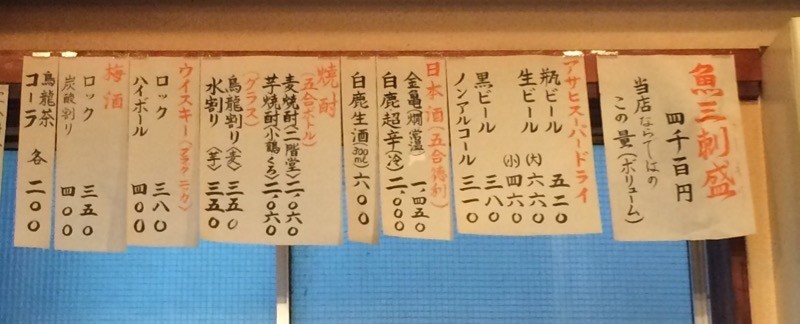 魚三刺盛
四千百円
当店ならではの
この量(ボリューム)
アサヒスーパードライ
瓶ビール 五二〇
生ビール (大) 六六〇
(小) 四六〇
黒ビール 三八〇
ノンアルコール 三一〇
日本酒(五合徳利)
金亀(燗・常温) 一、四五〇
白鹿超辛(冷) 二、〇〇〇
白鹿生酒(300ml) 六〇〇
焼酎
(五合ボトル)
麦焼酎(二階堂) 二、〇六〇
芋焼酎(小鶴くろ) 二、〇六〇
(グラス)
烏龍割り(麦) 三五〇
水割り(芋) 三五〇
ウイスキー(ブラックニッカ)
ロック 三八〇
ハイボール 四〇〇
梅酒
ロック 三五〇
炭酸割り 四〇〇
烏龍茶
コーラ 各 二〇〇